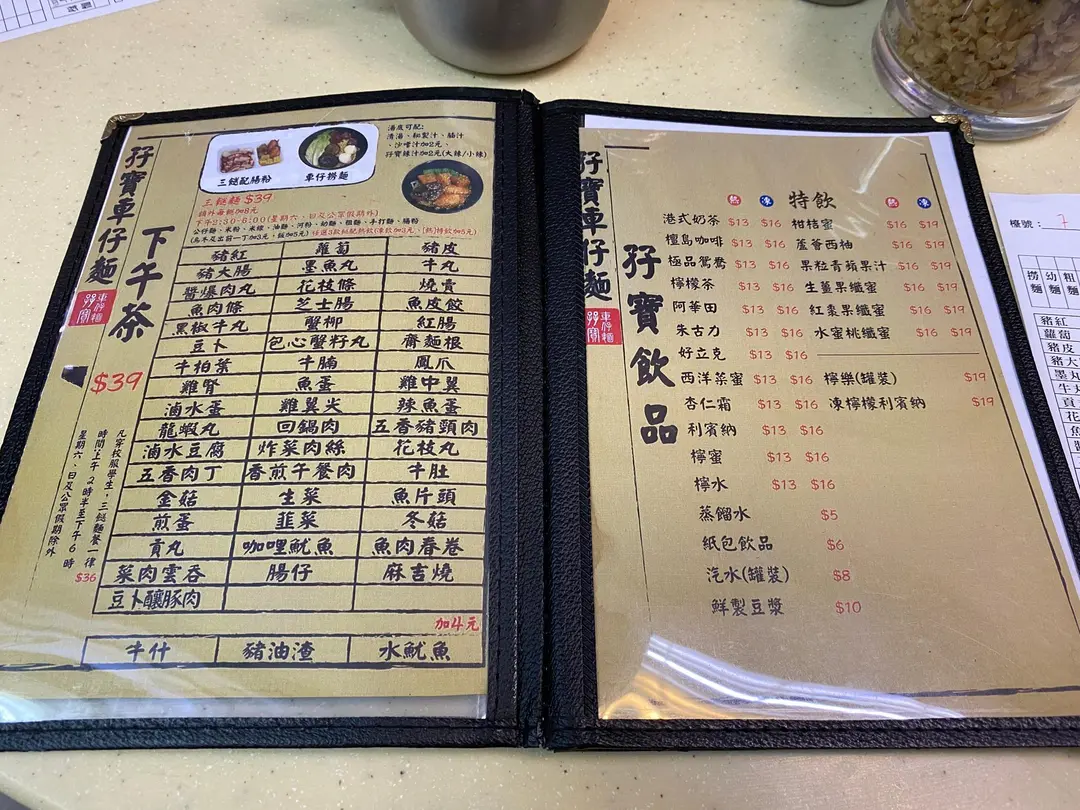 孖寶車仔麵
車仔麵
孖寶
下午茶
$39
凡穿校服學生，三餸麵餐一律$36
時間上午2時半至下午6時
星期六、日及公眾假期除外
三餸配腸粉
車仔撈麵
湯底可配:
清湯、秘製汁、腩汁
、沙嗲汁加2元、
孖寶辣汁加2元(大辣/小辣)
三餸麵 $39
額外每餸加8元
下午2:30-6:00(星期六、日及公眾假期外)
公仔麵、米粉、米線、油麵、河粉、幼麵、粗麵、手打麵、腸粉
豬紅 蘿蔔 豬皮
豬大腸 墨魚丸 牛丸
醬爆肉丸 花枝條 燒賣
魚肉條 芝士腸 魚皮餃
黑椒牛丸 蟹柳 紅腸
豆卜 包心蟹籽丸 齋麵根
牛柏葉 牛腩 鳳爪
雞腎 魚蛋 雞中翼
滷水蛋 雞翼尖 辣魚蛋
龍蝦丸 回鍋肉 五香豬頸肉
滷水豆腐 炸菜肉絲 花枝丸
五香肉丁 香煎午餐肉 牛肚
金菇 生菜 魚片頭
煎蛋 韮菜 冬菇
貢丸 咖哩魷魚 魚肉春卷
菜肉雲吞 腸仔 麻吉燒
豆卜釀豚肉
加4元
牛什 豬油渣 水魷魚
孖寶車仔麵
車仔麵
孖寶
孖寶飲品
熱 凍 特飲 熱 凍
港式奶茶 $13 $16 柑桔蜜 $16 $19
檀島咖啡 $13 $16 蘆薈西柚 $16 $19
極品鴛鴦 $13 $16 果粒青蘋果汁 $16 $19
檸檬茶 $13 $16 生薑果纖蜜 $16 $19
阿華田 $13 $16 紅棗果纖蜜 $16 $19
朱古力 $13 $16 水蜜桃纖蜜 $16 $19
好立克 $13 $16
西洋菜蜜 $13 $16 檸樂(罐裝) $19
杏仁霜 $13 $16 凍檸檬利賓納 $19
利賓納 $13 $16
檸蜜 $13 $16
檸水 $13 $16
蒸餾水 $5
紙包飲品 $6
汽水(罐裝) $8
鮮製豆漿 $10
檯號： 7
撈麵 幼麵 粗麵
豬紅
蘿蔔
豬皮
豬大
墨丸
牛丸